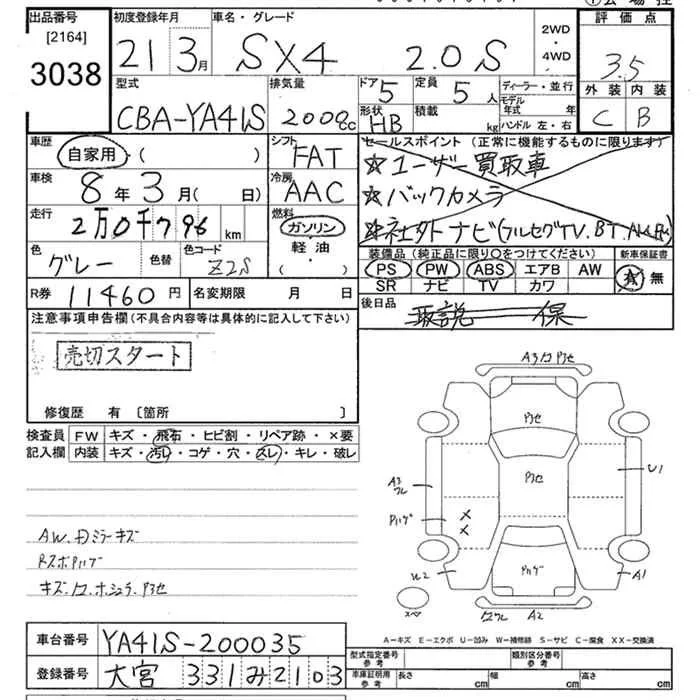 出品番号
[2164]
3038
初度登録年月
21 3月
車名・グレード
SX4 2.0S
2WD
・
4WD
評価点
3.5
外装 内装
C B
型式
CBA-YA41S
排気量
2000cc
ドア 5
定員 5人
形状 HB
積載 kg
ディーラー・並行
モデル年式 年
ハンドル 左・右
車歴
自家用・( )
シフト
FAT
車検
8年3月( 日)
冷房
AAC
走行
2万0千796km
燃料
ガソリン
・
軽・油
・( )
色
グレー
色替
色コード
Z2S
R券 11460円
名変期限 月 日
セールスポイント(正常に機能するものに限ります)
☆ユーザー買取車
☆バックカメラ
☆社外ナビ(フルセグTV.BT.
装備品(純正品に限り○をつけてください)
PS PW ABS エアB AW
SR ナビ TV カワ
新車保証書
有 無
後日品
取説 保
注意事項申告欄(不具合内容等は具体的に記入して下さい)
売切スタート
修復歴 有 〔箇所 〕
検査員記入欄
FW キズ・飛石・ヒビ割・リペア跡・×要
内装 キズ・汚レ・コゲ・穴・スレ・キレ・破レ
AW.Dミラーキズ
RスポPハゲ
キズ.
車台番号 YA41S-200035
登録番号 大宮 331み2103
A3
Pアセ
Pアセ
Pハゲ
A3
Pハゲ
U2
U1
A1
A2
スペア
A-キズ E-エクボ U-凹み W-補修跡 S-サビ C-腐食 XX-交換済
型式指定番号
参考
類別区分番号
参考
車庫証明用
参考
長さ cm
幅 cm
高さ cm